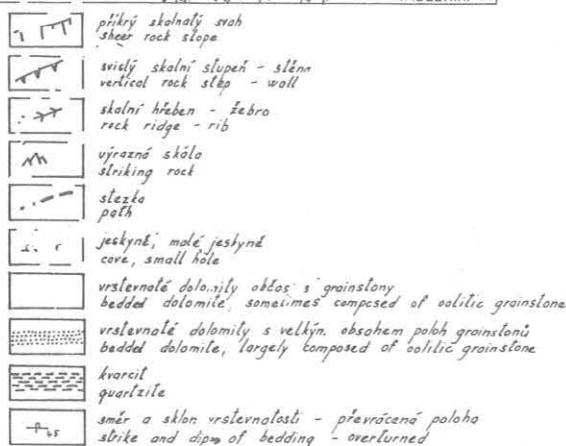 příkrý skalnatý svah
sheer rock slope
svislý skalní stupeň - stěna
vertical rock step - wall
skalní hřeben - žebro
rock ridge - rib
výrazná skála
striking rock
stezka
path
jeskyně, malé jeskyně
cave, small hole
vrstevnaté dolomity občas s grainstony
bedded dolomite, sometimes composed of oolitic grainstone
vrstevnaté dolomity s velkým obsahem poloh grainstonů
bedded dolomite, largely composed of oolitic grainstone
kvarcit
quartzite
směr a sklon vrstevnatosti - převrácená poloha
65
strike and dip of bedding - overturned